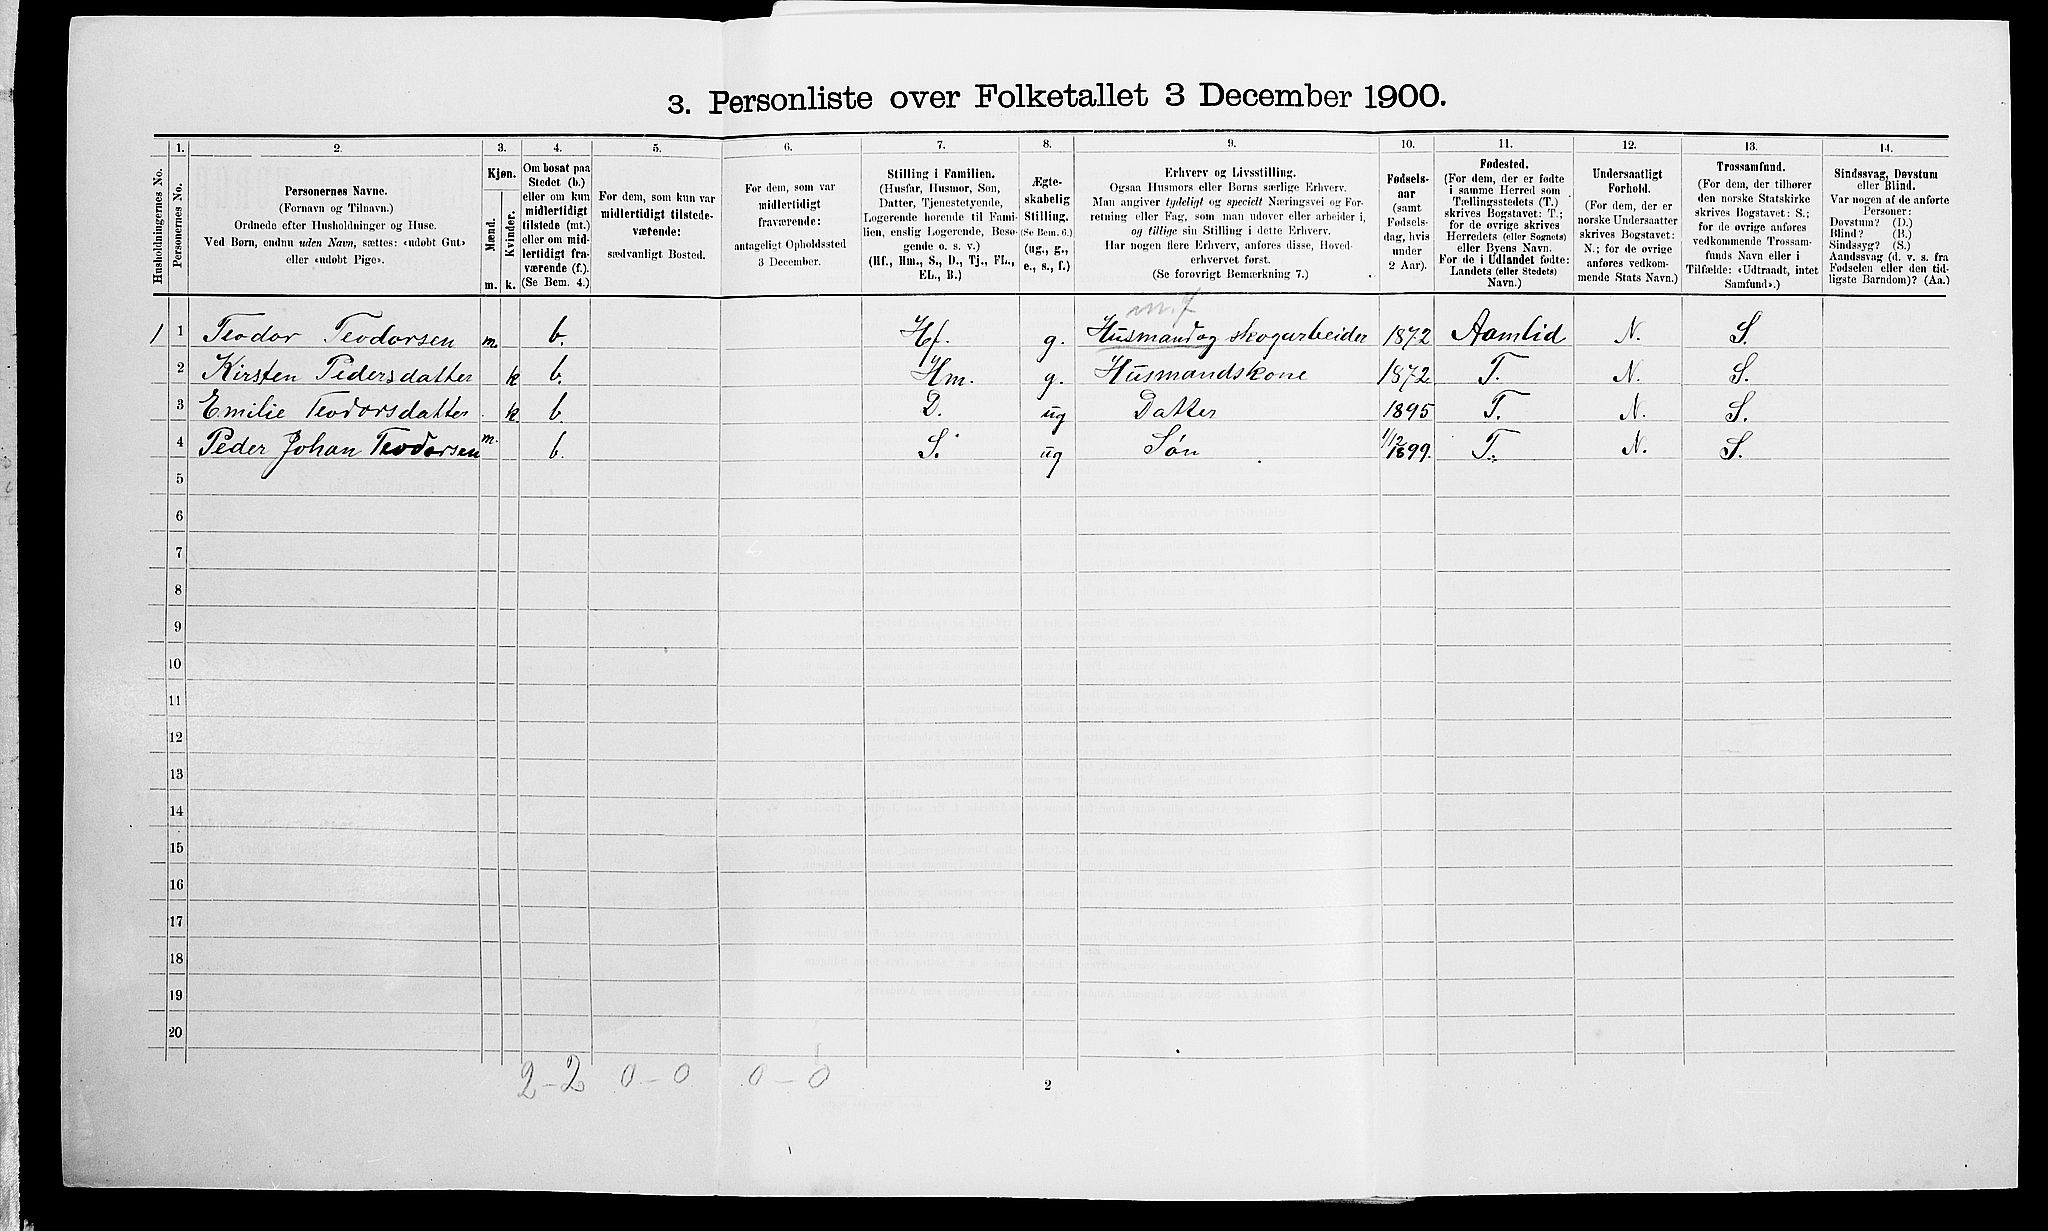 3. Personliste over Folketallet 3 December 1900.
Husholdningernes No.
1.
Personernes No.
2.
Personernes Navne.
(Fornavn og Tilnavn.)
Ordnede efter Husholdninger og Huse.
Ved Børn, endnu uden Navn, sættes: «udøbt Gut»
eller «udøbt Pige».
3.
Kjøn.
Mænd.
Kvinder.
m. k.
4.
Om bosat paa
Stedet (b.)
eller om kun
midlertidigt
tilstede (mt.)
eller om mid-
lertidigt fra-
værende (f.).
(Se Bem. 4.)
5.
For dem, som kun var
midlertidigt tilstede-
værende:
sædvanligt Bosted.
6.
For dem, som var
midlertidigt
fraværende:
antageligt Opholdssted
3 December.
7.
Stilling i Familien.
(Husfar, Husmor, Søn,
Datter, Tjenestetyende,
Logerende hørende til Fami-
lien, enslig Logerende, Besø-
gende o. s. v.)
(Hf., Hm., S., D., Tj., FL.,
EL., B.)
8.
Ægte-
skabelig
Stilling.
(Se Bem. 6.)
(ug., g.,
e., s., f.)
9.
Erhverv og Livsstilling.
Ogsaa Husmors eller Børns særlige Erhverv.
Man angiver tydeligt og specielt Næringsvei og For-
retning eller Fag, som man udøver eller arbeider i,
og tillige sin Stilling i dette Erhverv.
Har nogen flere Erhverv, anføres disse, Hoved-
erhvervet først.
(Se forøvrigt Bemærkning 7.)
10.
Fødsels-
aar
(samt
Fødsels-
dag, hvis
under
2 Aar).
11.
Fødested.
(For dem, der er fødte
i samme Herred som
Tællingsstedets (T.)
skrives Bogstavet: T.;
for de øvrige skrives
Herredets (eller Sognets)
eller Byens Navn.
For de i Udlandet fødte:
Landets (eller Stedets)
Navn.)
12.
Undersaatligt
Forhold.
(For dem, der er
norske Undersaatter
skrives Bogstavet:
N.; for de øvrige
anføres vedkom-
mende Stats Navn.)
13.
Trossamfund.
(For dem, der tilhører
den norske Statskirke
skrives Bogstavet: S.;
for de øvrige anføres
vedkommende Trossam-
funds Navn eller i
Tilfælde: «Udtraadt, intet
Samfund».)
14.
Sindssvag, Døvstum
eller Blind.
Var nogen af de anførte
Personer:
Døvstum? (D.)
Blind? (B.)
Sindssyg? (S.)
Aandssvag (d. v. s. fra
Fødselen eller den tid-
ligste Barndom)? (Aa.)
1 1 Teodor Teodorsen m. b. Hf. g. Husmand og skogarbeider 1872 Aamlid N. S.
2 Kirsten Pedersdatter k b. Hm. g. Husmandskone 1872 T. N. S.
3 Emilie Teodorsdatter k b. D. ug Datter 1895 T. N. S.
4 Peder Johan Teodorsen m. b. S. ug Søn 1/12 1899. T. N. S.
5
6
7
8
9
10
11
12
13
14
15
16
17
18
19
20
2-2 0-0 0-0
2